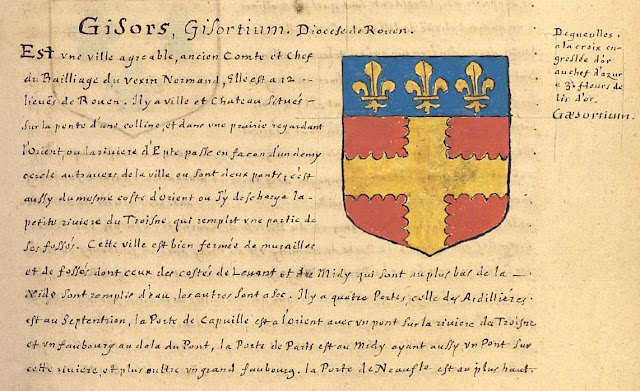 Gisors, Gisortium. Diocese de Rouen.
Est vne ville agreable, ancien Comte et Chef
du Bailliage du Vexin Normand, Elle est a 12
lieües de Roüen. Il y a ville et Chateau situés
sur la pente d'une colline, et dans vne prairie regardant
l'Orient, ou la riviere d'Epte passe en façon d'un demy
cercle autravers de la ville ou sont deux ponts; c'est
aussy du mesme costé d'orient ou s'y descharge la
petite riviere du Troisne qui remplit vne partie de
ses fossés. Cette ville est bien fermée de murailles
et de fossés dont ceux des costés de Levant et du Midy qui sont au plus bas de la
sont remplis d'eau, les autres sont a sec. Il y a quatre Portes, celle des Ardillières
est au Septentrion, la Porte de Capuille est a l'Orient avec vn pont sur la riviere du Troisne
et vn faubourg au dela du Pont, la Porte de Paris est au Midy ayant aussy vn Pont sur
cette riviere, et plus outre vn grand faubourg. la Porte de Neaufle est au plus haut.
De gueulles
a la croix en-
greslée d'or
au chef d'azur
a 3 fleurs de
lis d'or.
Gæsortium.